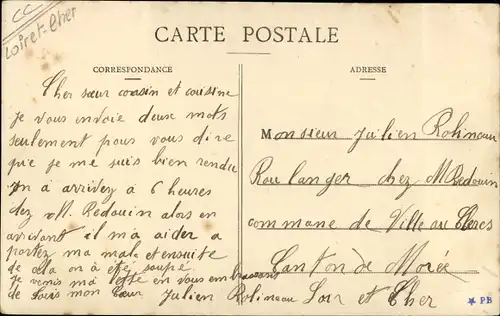 CC
Loiret-Cher
CARTE POSTALE
CORRESPONDANCE
Cher sœur cousin et cousine
je vous envoie deux mots
seulement pous vous dire
que je me suis bien rendu
on à arrivez à 6 heures
chez M. Redouin alors en
arrivant il m'a aider a
portez ma male et ensuite
de cela on à été soupé
je remis ma lettre en vous embrassant
de Louis mon Cœur Julien Rolineau
ADRESSE
Monsieur Julien Rolineau
Boulanger chez M Redouin
commune de Ville au Clercs
Canton de Morée
Loir et Cher
PB